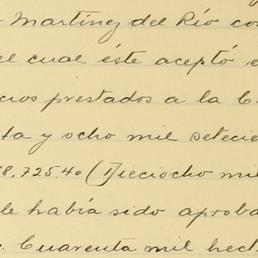 Martínez del Río co
el cual éste aceptó e
cios prestados a la C
ta y ocho mil setecie
8.725.40 (Dieciocho mil
le había sido aproba
Cuarenta mil hect